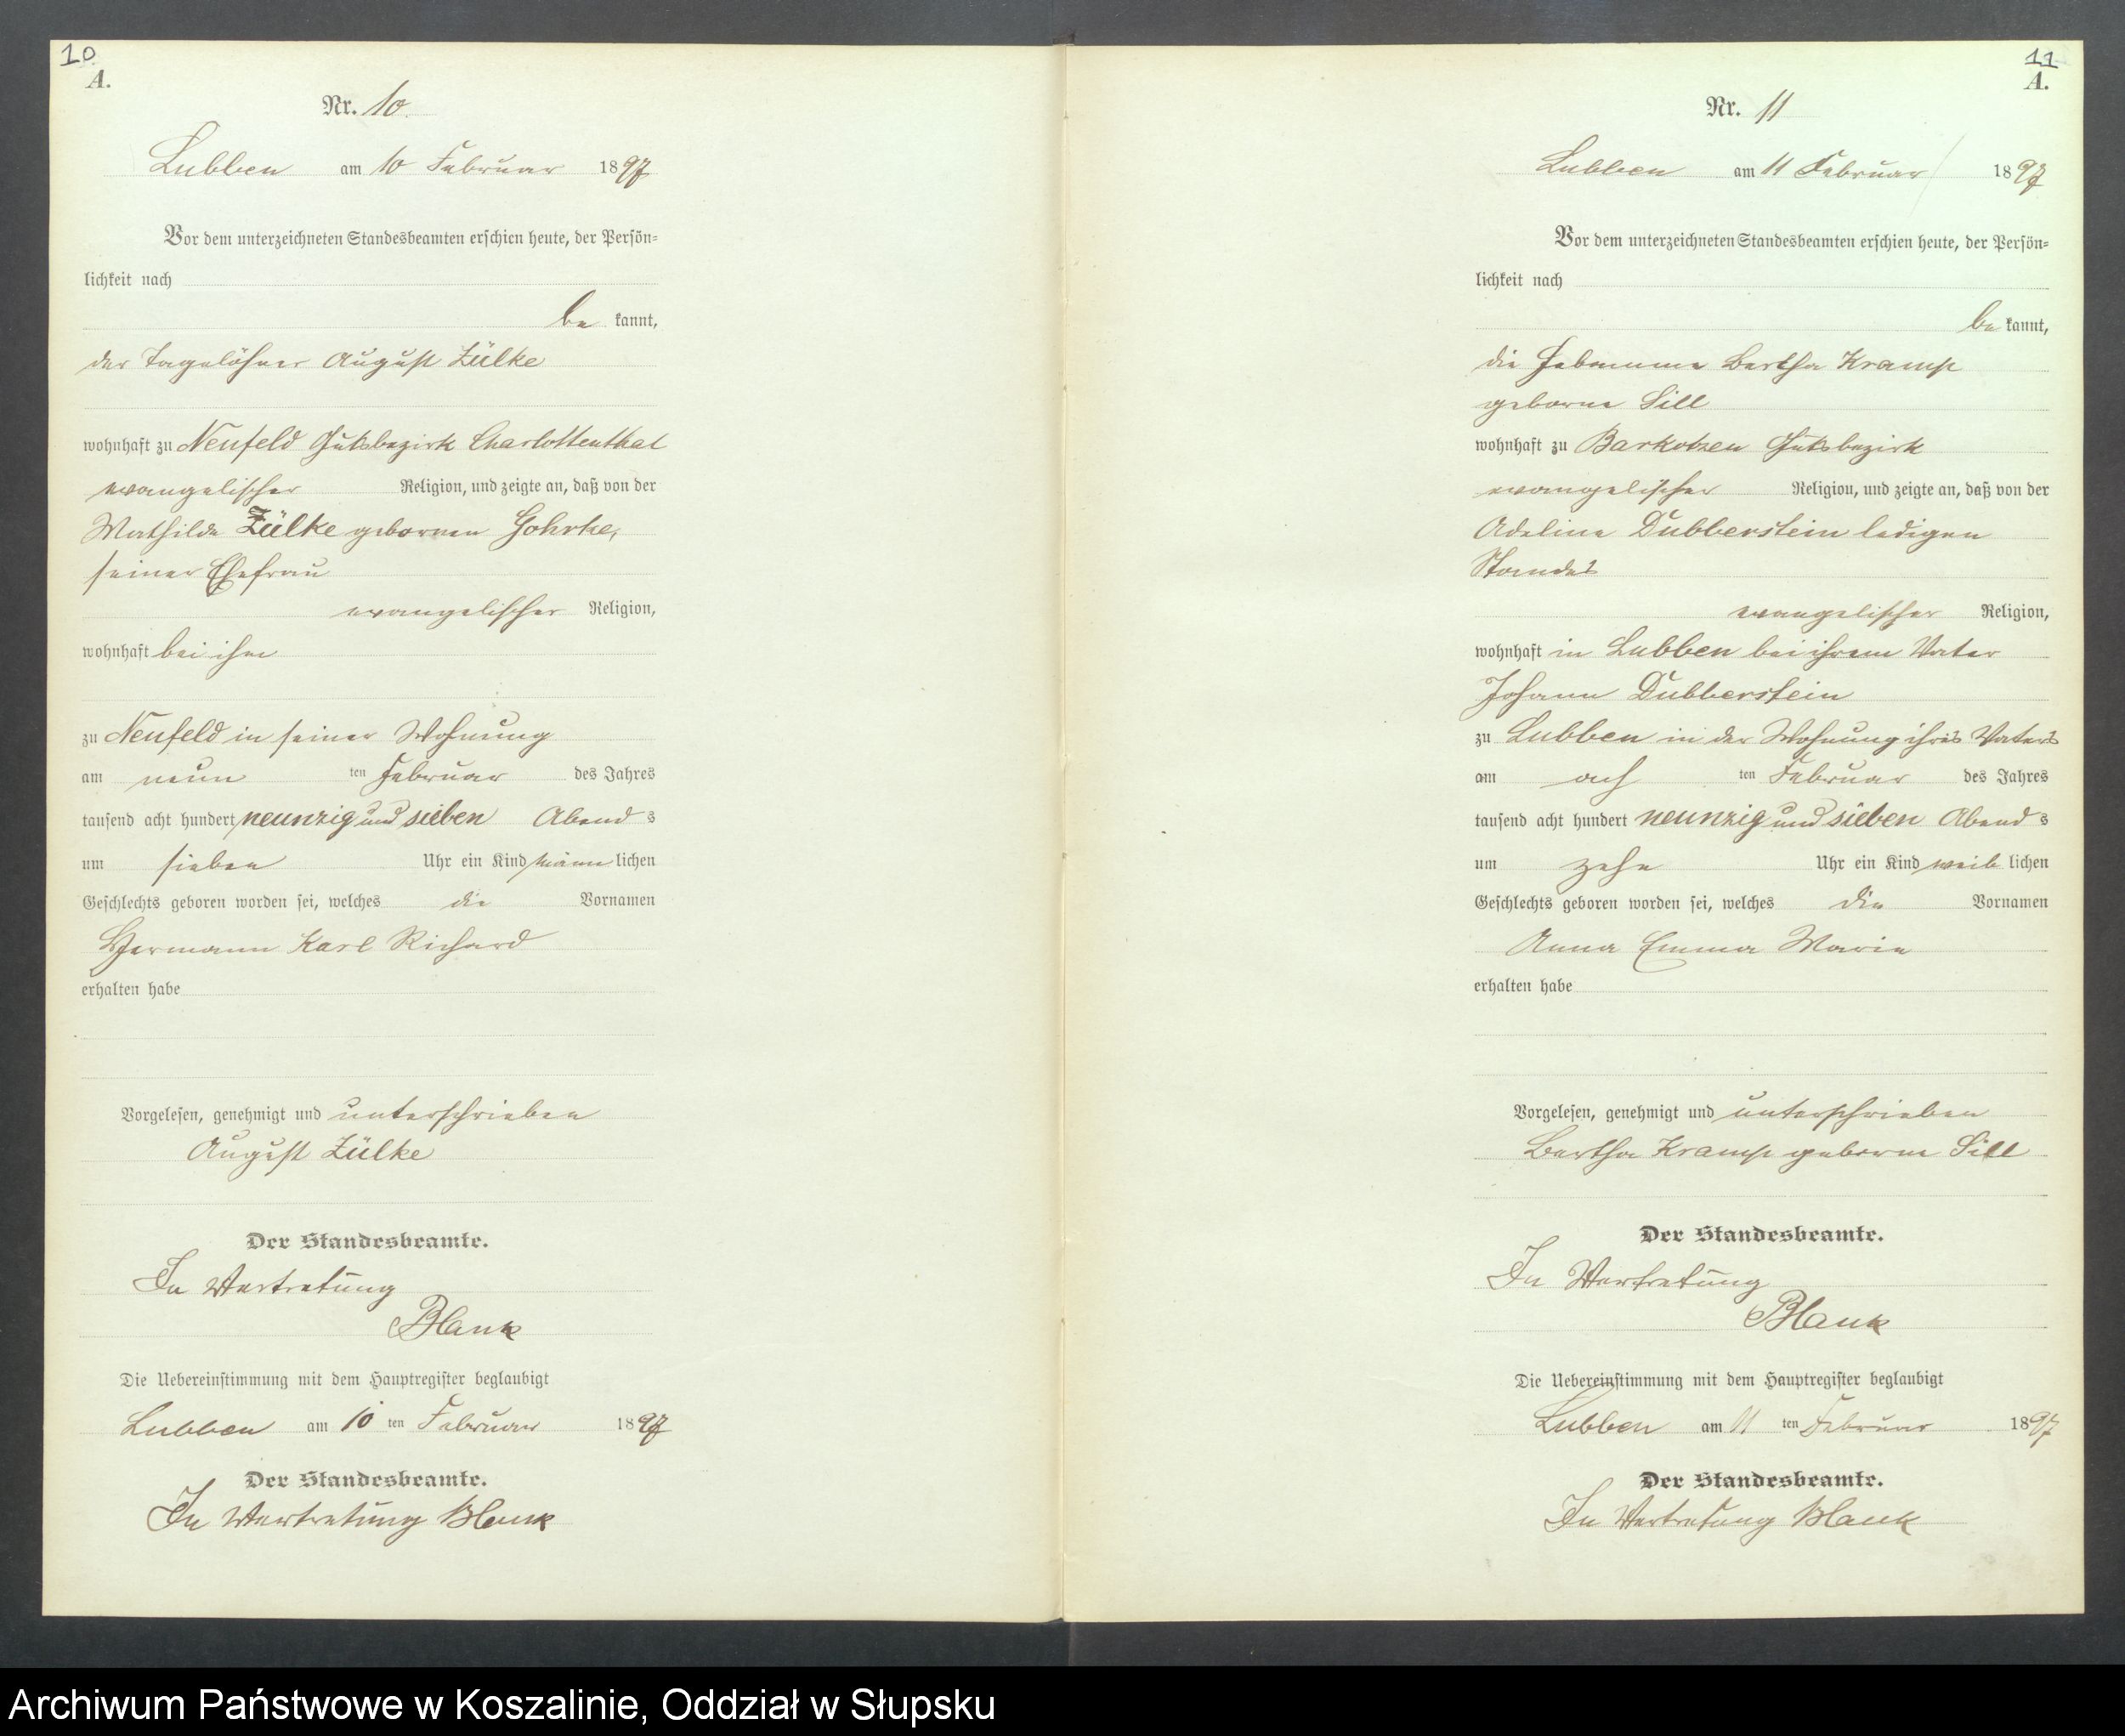 10
A.
Nr. 10.
Lubben am 10 Februar 1897
Vor dem unterzeichneten Standesbeamten erschien heute, der Persön-
lichkeit nach
be kannt,
der Tagelöhner August Zülke
wohnhaft zu Neufeld Gutsbezirk Charlottenthal
evangelischer Religion, und zeigte an, daß von der
Mathilde Zülke geborenen Gohrke,
seiner Ehefrau
evangelischer Religion,
wohnhaft bei ihm
zu Neufeld in seiner Wohnung
am neun ten Februar des Jahres
tausend acht hundert neunzig und sieben Abend s
um sieben Uhr ein Kind männ lichen
Geschlechts geboren worden sei, welches die Vornamen
Hermann Karl Richard
erhalten habe
Vorgelesen, genehmigt und unterschrieben
August Zülke
Der Standesbeamte.
In Vertretung
Blank
Die Uebereinstimmung mit dem Hauptregister beglaubigt
Lubben am 10 ten Februar 1897
Der Standesbeamte.
In Vertretung Blank
11
A.
Nr. 11
Lubben am 11 Februar 1897
Vor dem unterzeichneten Standesbeamten erschien heute, der Persön-
lichkeit nach
be kannt,
die Hebamme Bertha Kramp
geborne Sill
wohnhaft zu Barkotzen Gutsbezirk
evangelischer Religion, und zeigte an, daß von der
Adeline Dubberstein ledigen
Standes
evangelischer Religion,
wohnhaft in Lubben bei ihrem Vater
Johann Dubberstein
zu Lubben in der Wohnung ihres Vaters
am ach ten Februar des Jahres
tausend acht hundert neunzig und sieben Abend s
um zehn Uhr ein Kind weib lichen
Geschlechts geboren worden sei, welches die Vornamen
Anna Emma Marie
erhalten habe
Vorgelesen, genehmigt und unterschrieben
Bertha Kramp geborne Sill
Der Standesbeamte.
In Vertretung
Blank
Die Uebereinstimmung mit dem Hauptregister beglaubigt
Lubben am 11 ten Februar 1897
Der Standesbeamte.
In Vertretung Blank
Archiwum Państwowe w Koszalinie, Oddział w Słupsku